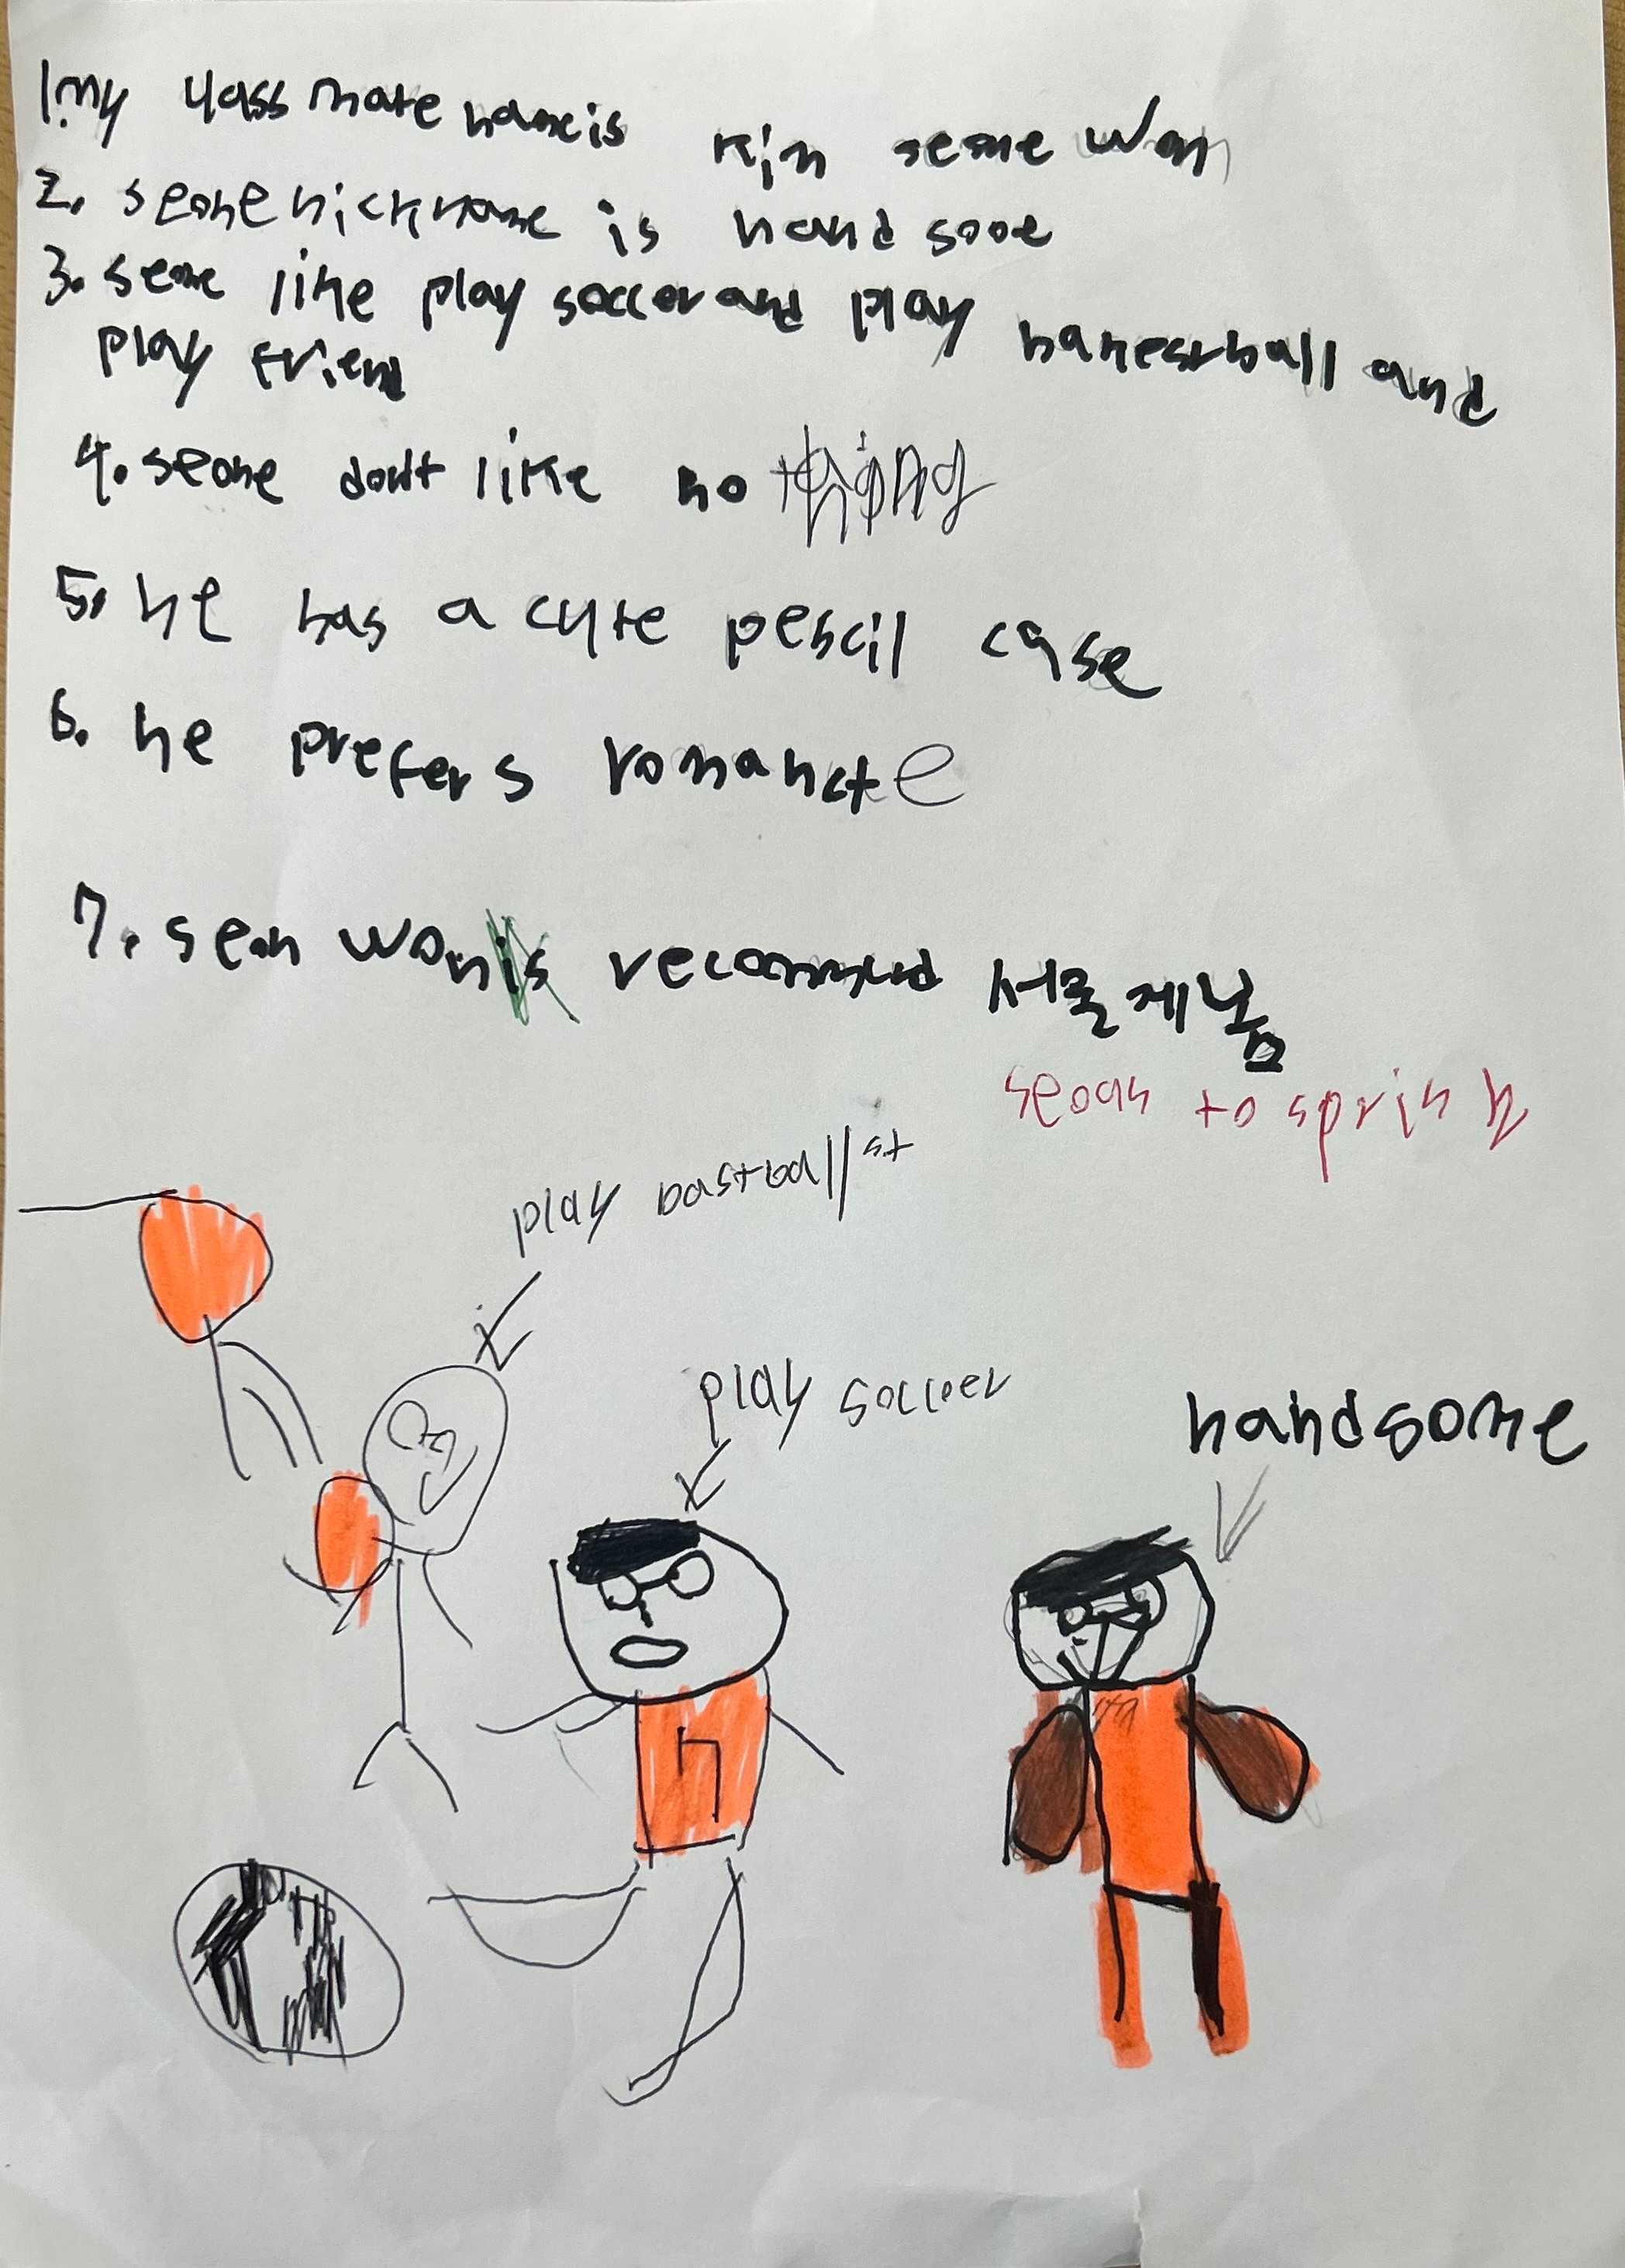 1. my classmate name is kim seone won
2. seone nickname is hand some
3. seone like play soccer and play basketball and
play friend
4. seone don't like no thing
5. he has a cute pescil case
6. he prefers romancte
7. seon won recommed 서울에봄
seoas to sprisg
play bastball st
play soccer
handsome